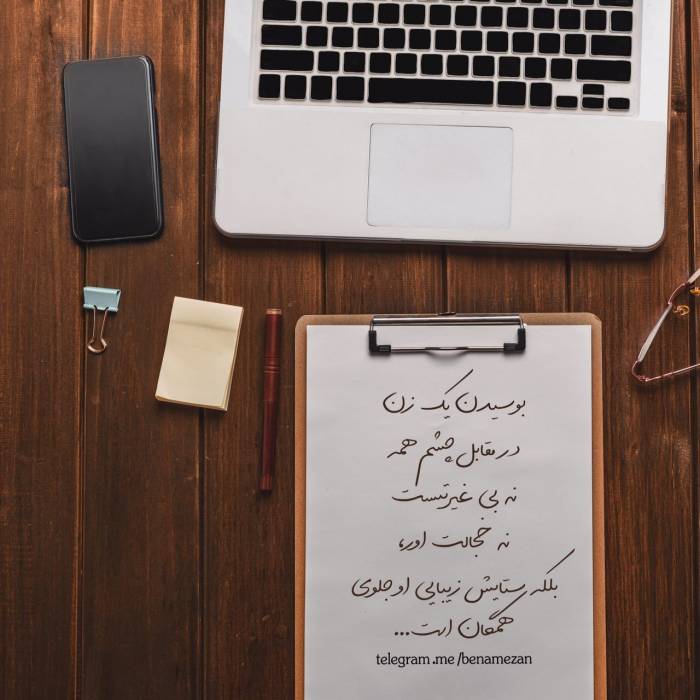 بوسیدن یک زن
در مقابل چشم همه
نه بی غیرتیست
نه خجالت آور،
بلکه ستایش زیبایی او جلوی
همگان است...
telegram.me/benamezan